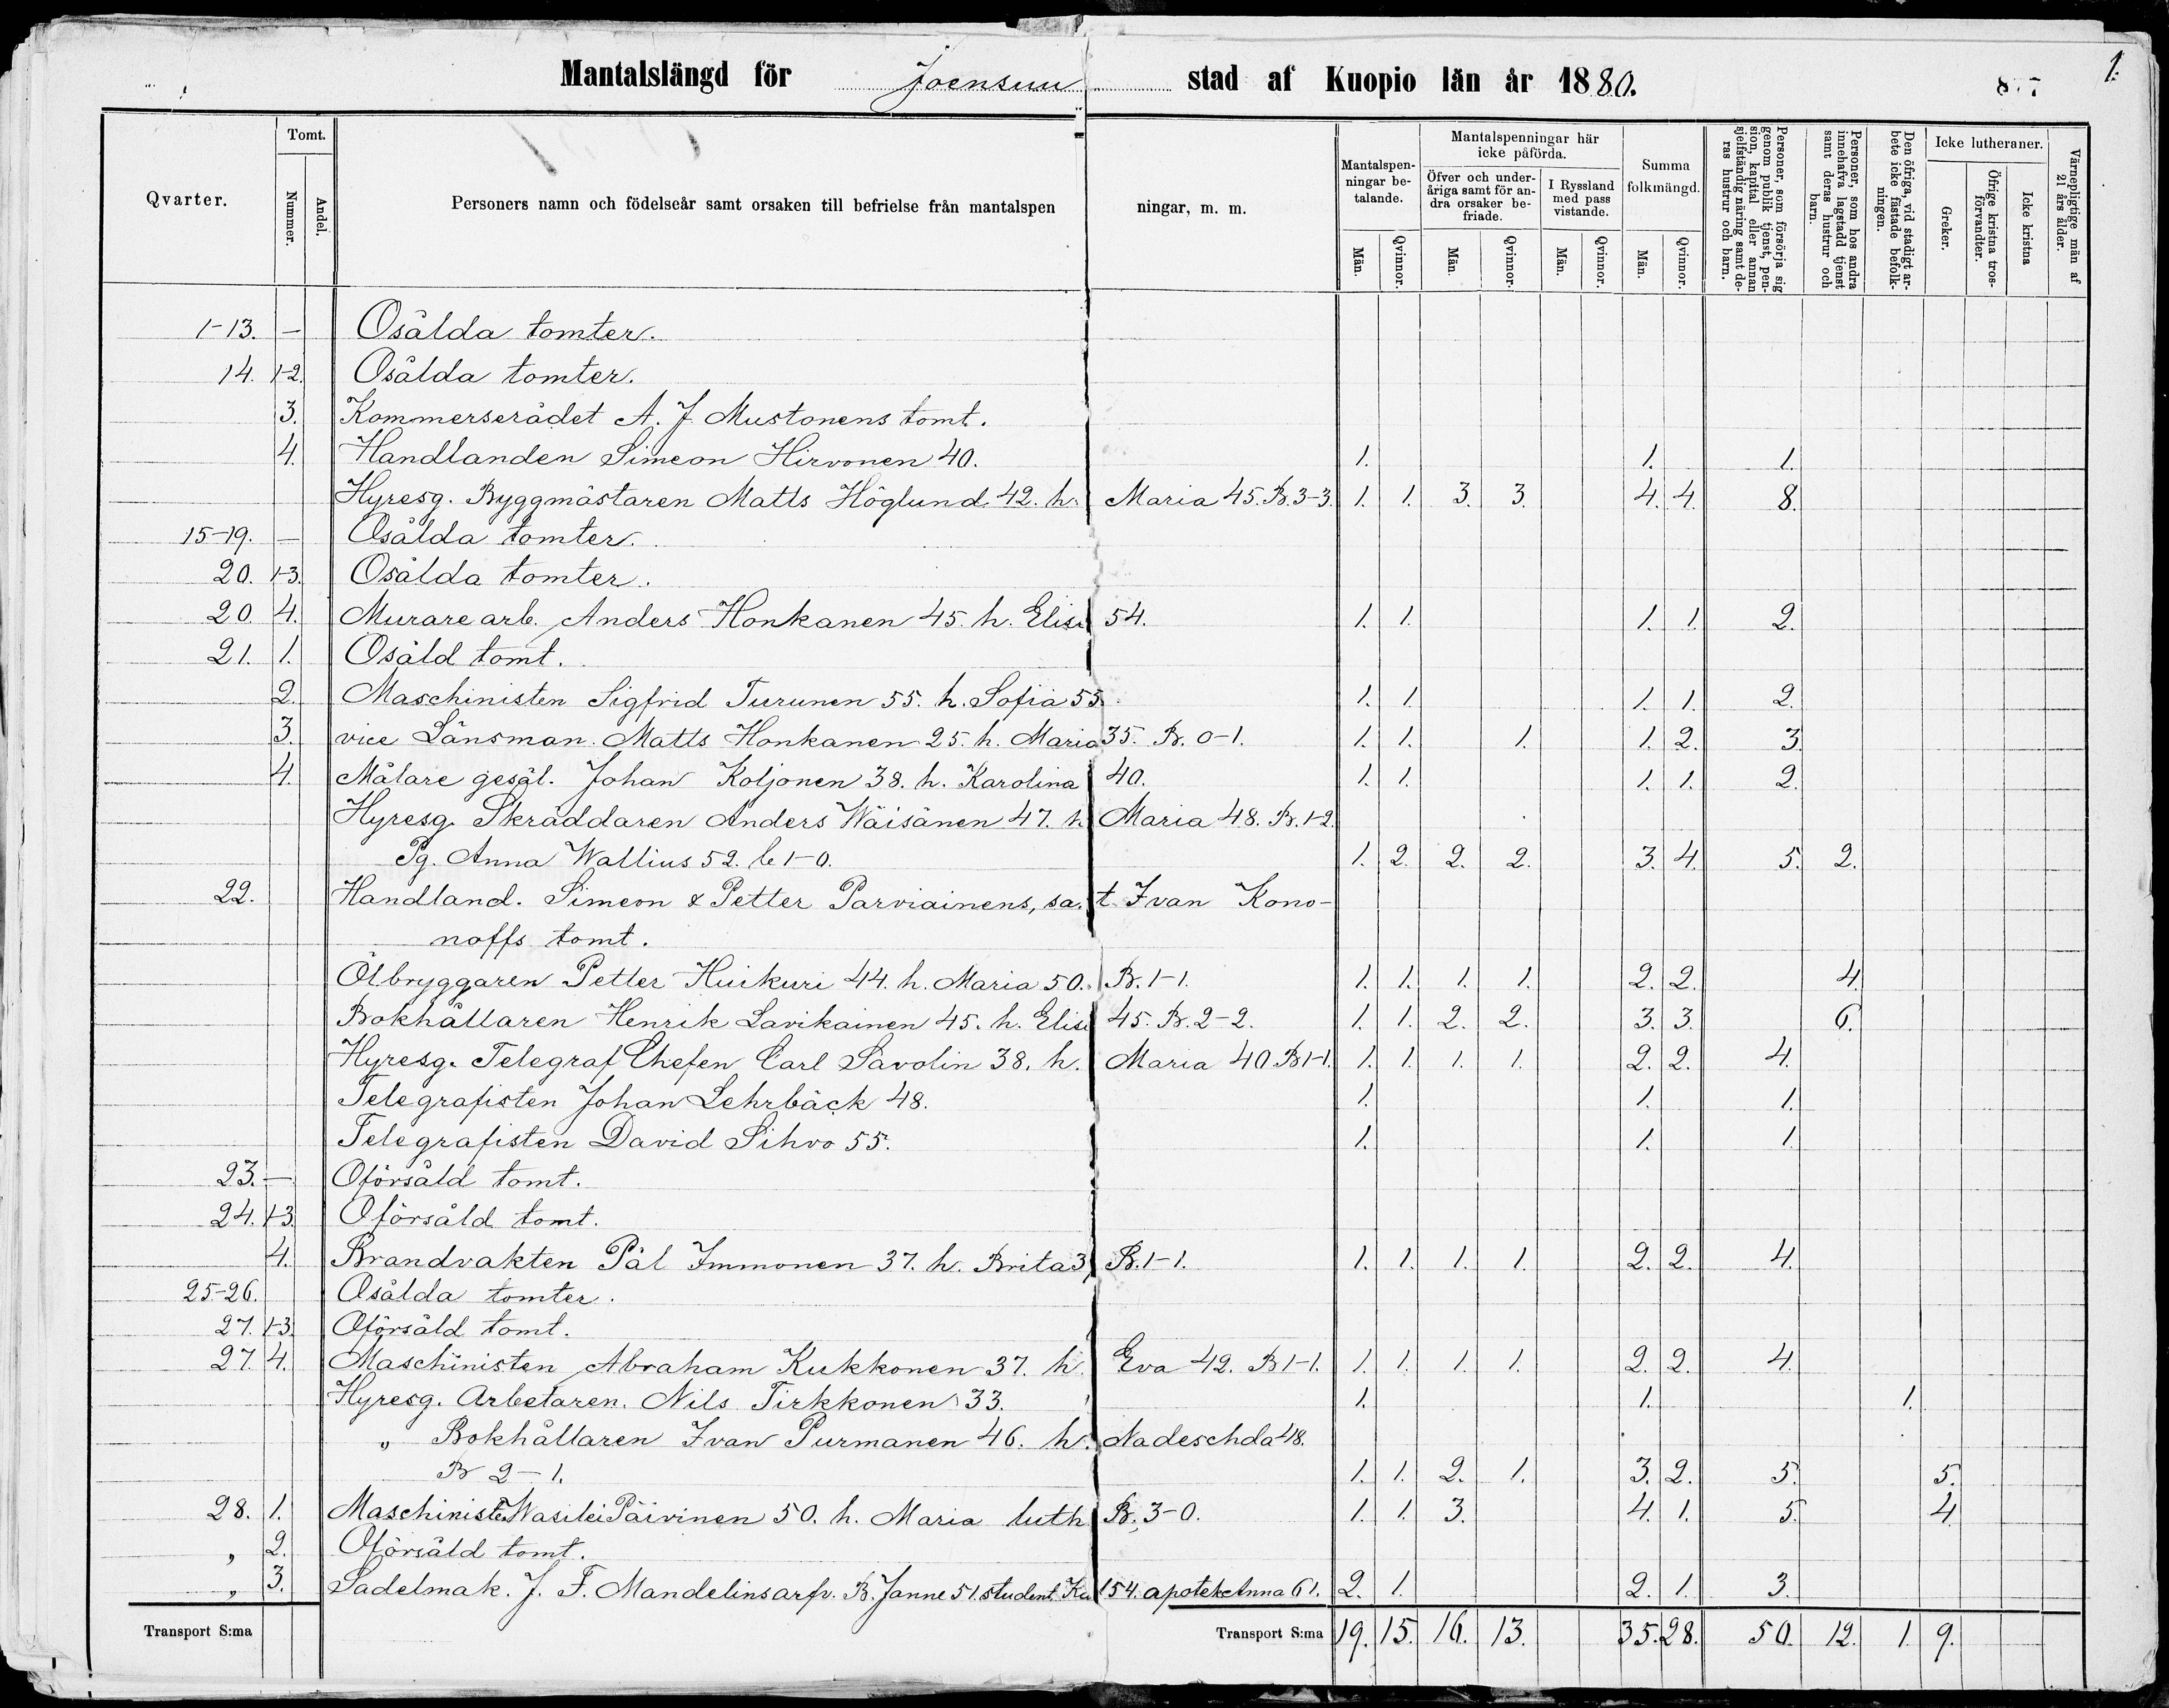 1.
Mantalslängd för Joensuu stad af Kuopio län år 1880.
Qvarter. Tomt. Nummer. Andel. Personers namn och födelseår samt orsaken till befrielse från mantalspenningar, m. m.
Mantalspenningar betalande. Män. Qvinnor.
Mantalspenningar här icke påförda. Öfver och underåriga samt för andra orsaker befriade. Män. Qvinnor. I Ryssland med pass vistande. Män. Qvinnor.
Summa folkmängd. Män. Qvinnor.
Personer, som försörja sig genom publik tjenst, pension, kapital eller annan sjelfständig näring samt deras hustrur och barn.
Personer, som hos andra innehafva lagstadd tjenst samt deras hustrur och barn.
Den öfriga, vid stadigt arbete icke fästade befolkningen.
Icke lutheraner. Greker. Öfrige kristna trosförvandter. Icke kristna
Värnepligtige män af 21 års ålder.
1-13. — Osålda tomter.
14. 1-2. Osålda tomter.
3. Kommerserådet A. J. Mustonens tomt.
4. Handlanden Simeon Hirvonen 40. 1. 1. 1.
Hyresg. Byggmästaren Matts Höglund 42. h. Maria 45. B. 3-3. 1. 1. 3. 3. 4. 4. 8.
15-19. — Osålda tomter.
20. 1-3. Osålda tomter.
20. 4. Murare arb. Anders Honkanen 45. h. Elisa 54. 1. 1. 1. 1. 2.
21. 1. Osåld tomt.
2. Maschinisten Sigfrid Turunen 55. h. Sofia 55. 1. 1. 1. 1. 2.
3. vice Länsman. Matts Honkanen 25. h. Maria 35. B. 0-1. 1. 1. 1. 1. 2. 3
4. Målare gesäl. Johan Koljonen 38. h. Karolina 40. 1. 1. 1. 1. 2.
Hyresg. Skräddaren Anders Wäisänen 47. h. Maria 48. B. 1-2.
Pg. Anna Wallius 52. b 1-0. 1. 2. 2. 2. 3. 4. 5. 2.
22. Handland. Simeon & Petter Parviainens, sa. t. Ivan Kono-
noffs tomt.
Ölbryggaren Petter Huikuri 44. h. Maria 50. B. 1-1. 1. 1. 1. 1. 2. 2. 4.
Bokhållaren Henrik Lavikainen 45. h. Elisa 45. B. 2-2. 1. 1. 2. 2. 3. 3. 6.
Hyresg. Telegraf Chefen Carl Savolin 38. h. Maria 40. B 1-1. 1. 1. 1. 1. 2. 2. 4.
Telegrafisten Johan Lehrbäck 48. 1. 1. 1.
Telegrafisten David Sihvo 55. 1. 1. 1.
23. — Oförsåld tomt.
24. 1-3. Oförsåld tomt.
4. Brandvakten Pål Immonen 37. h. Brita 3 B. 1-1. 1. 1. 1. 1. 2. 2. 4.
25-26. Osålda tomter.
27. 1-3. Oförsåld tomt.
27. 4. Maschinisten Abraham Kukkonen 37. h. Eva 42. B 1-1. 1. 1. 1. 1. 2. 2. 4.
Hyresg. Arbetaren. Nils Tirkkonen 33. 1. 1. 1.
„ Bokhållaren Ivan Purmanen 46. h. Nadeschda 48.
B 2-1. 1. 1. 2. 1. 3. 2. 5. 5.
28. 1. Maschinisten Wasilei Päivinen 50. h. Maria luth B. 3-0. 1. 1. 3. 4. 1. 5. 4.
„ 2. Oförsåld tomt.
„ 3. Sadelmak. J. F. Mandelins arfv. B. Janne 51. student. 54. apotek. Anna 61. 2. 1. 2. 1. 3.
Transport S:ma Transport S:ma 19. 15. 16. 13. 35. 28. 50. 12. 1. 9.